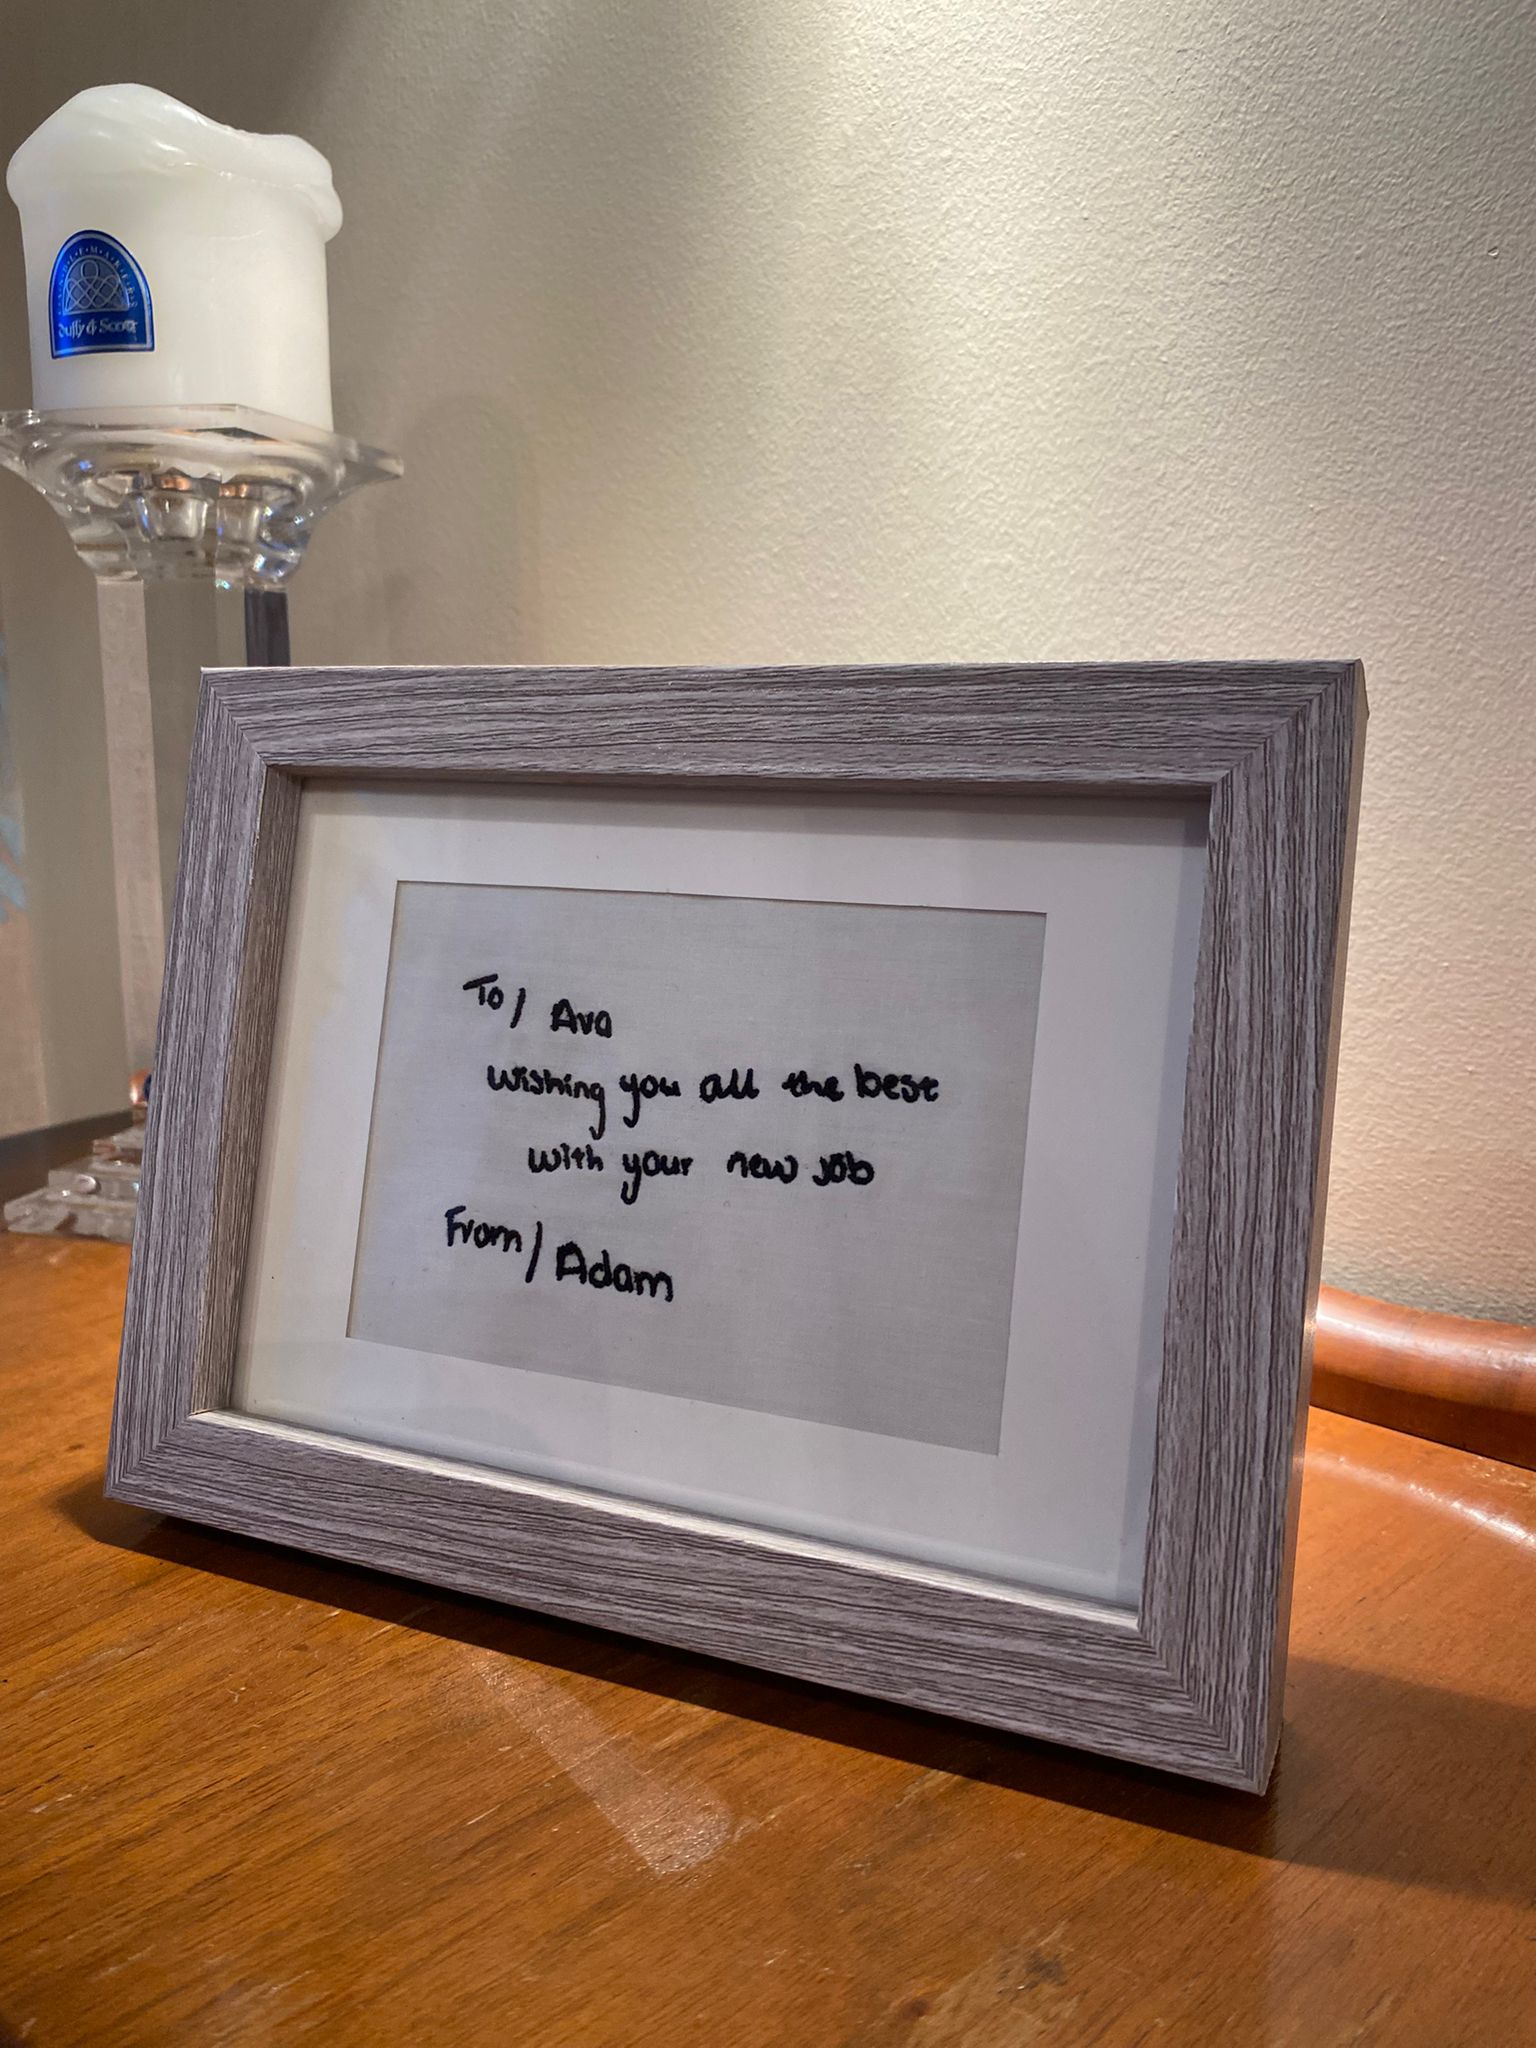 Duffy & Scott
To/ Ava
wishing you all the best
with your new job
From/ Adam